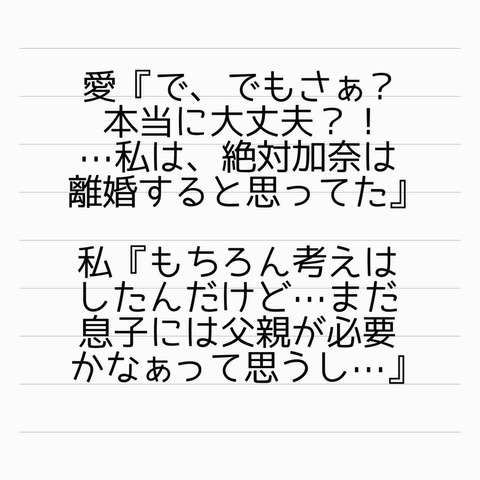 愛『で、でもさぁ？
本当に大丈夫？！
…私は、絶対加奈は
離婚すると思ってた』
私『もちろん考えは
したんだけど…まだ
息子には父親が必要
かなぁって思うし…』